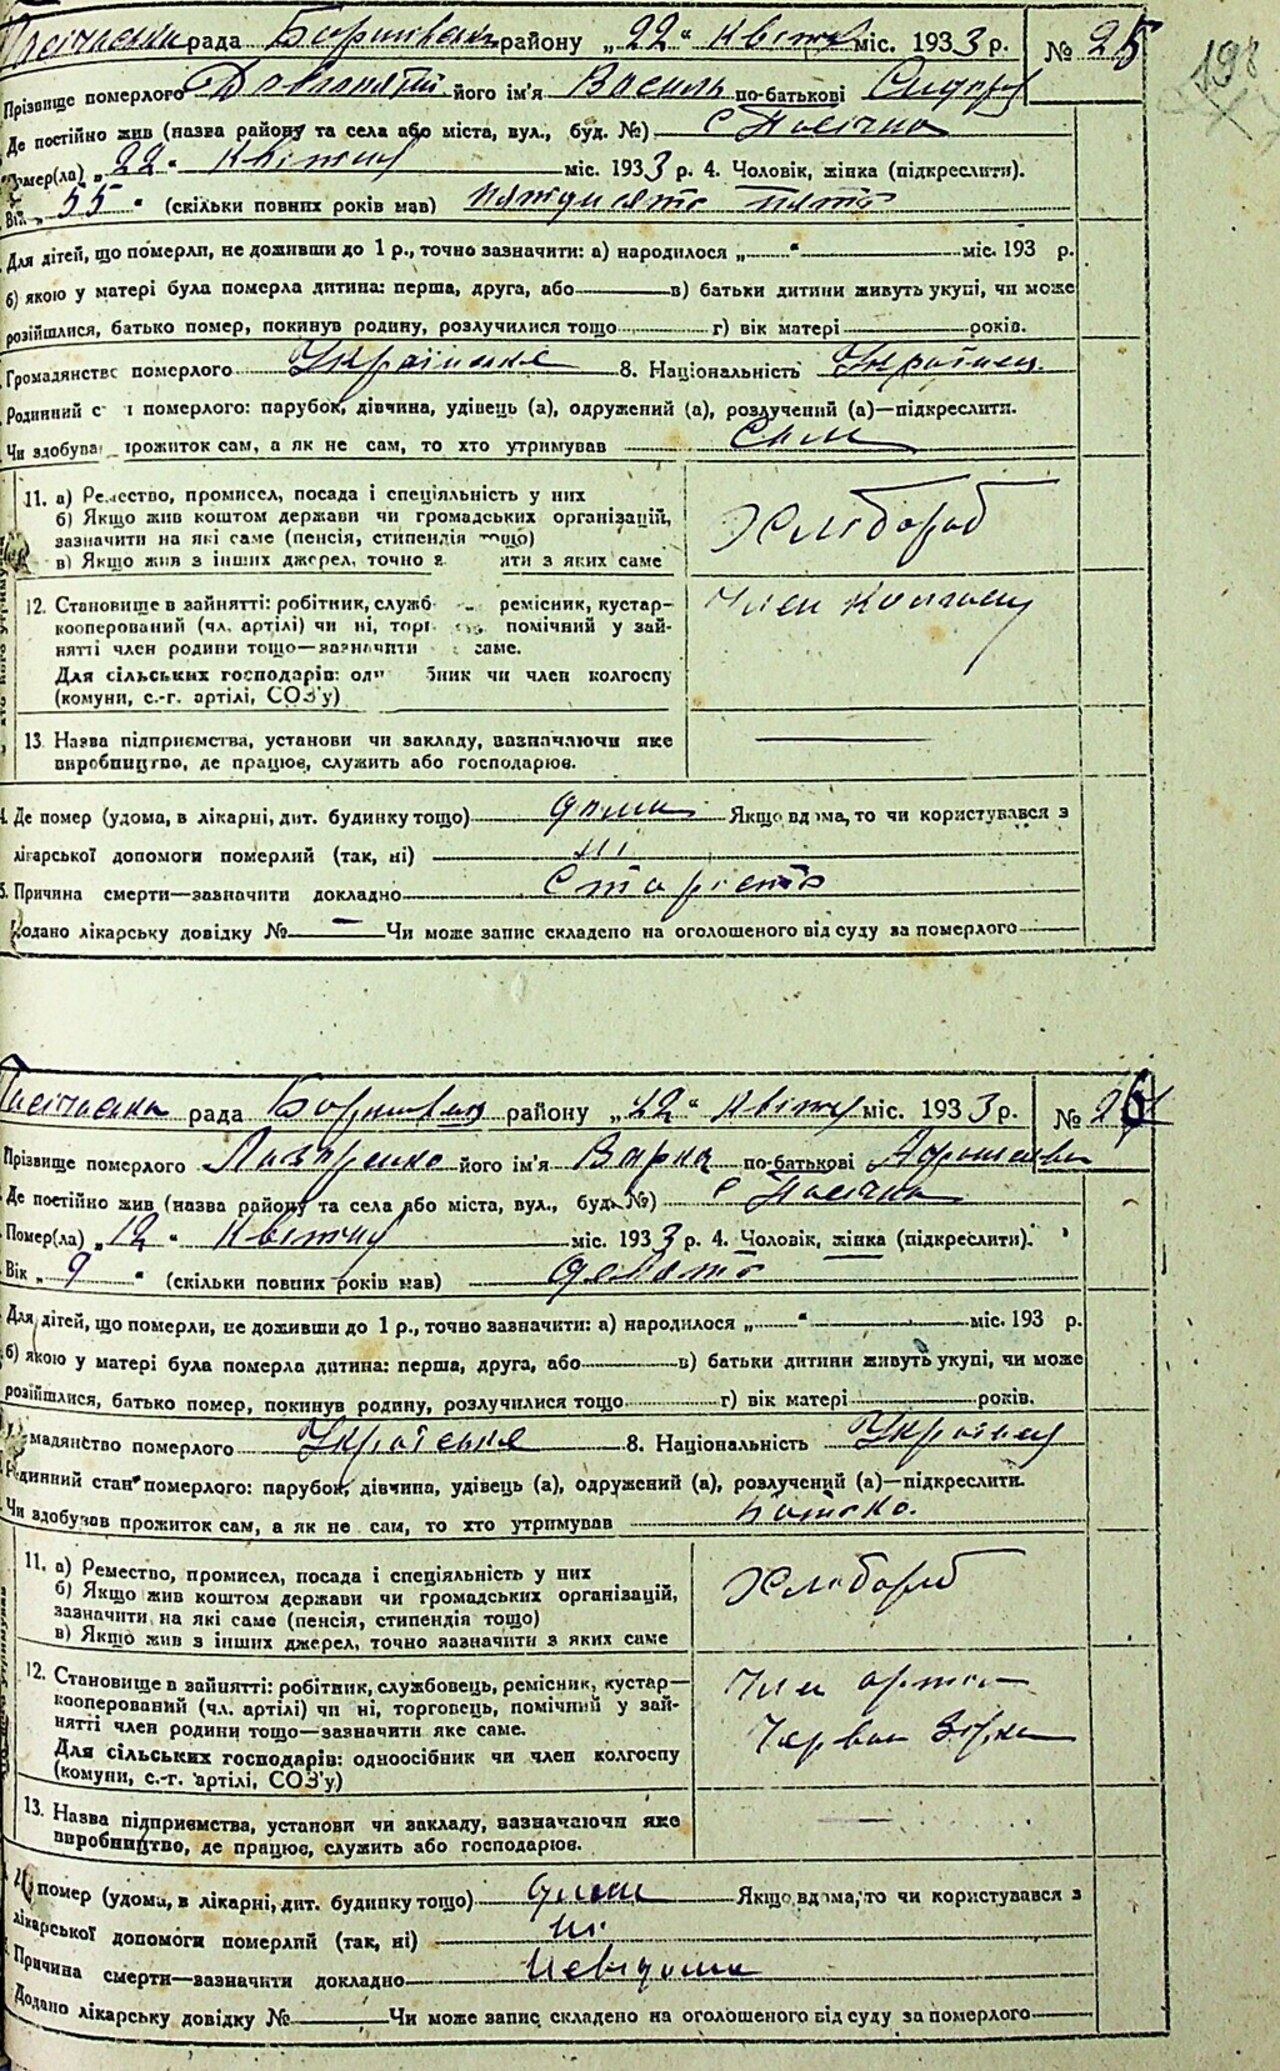 Пасічанська рада Борщівського району „22“ квітня міс. 1933 р. № 25
198
Прізвище померлого його ім'я Василь по-батькові
Де постійно жив (назва району та села або міста, вул., буд. №) с Пасічна
Умер(ла) „22“ квітня міс. 1933 р. 4. Чоловік, жінка (підкреслити).
Вік „55“ (скільки повних років мав) пятдисять пять
Для дітей, що померли, не доживши до 1 р., точно зазначити: а) народилося „ “ міс. 193 р.
б) якою у матері була померла дитина: перша, друга, або в) батьки дитини живуть укупі, чи може
розійшлися, батько помер, покинув родину, розлучилися тощо г) вік матері років.
Громадянство померлого Українське 8. Національність Українец.
Родинний с і померлого: парубок, дівчина, удівець (а), одружений (а), розлучений (а)—підкреслити.
Чи здобував прожиток сам, а як не сам, то хто утримував Сам
11. а) Ремество, промисел, посада і спеціяльність у них
б) Якщо жив коштом держави чи громадських організацій,
зазначити на які саме (пенсія, стипендія тощо)
в) Якщо жив з інших джерел, точно з ити з яких саме
Хлібороб
12. Становище в зайнятті: робітник, служб ремісник, кустар-
кооперований (чл. артілі) чи ні, торг помічний у зай-
нятті член родини тощо—зазначити саме.
Для сільських господарів: од бник чи член колгоспу
(комуни, с.-г. артілі, СОЗ'у)
Член колгоспу
13. Назва підприємства, установи чи закладу, зазначаючи яке
виробництво, де працює, служить або господарює.
4. Де помер (удома, в лікарні, дит. будинку тощо) дома Якщо вдома, то чи користувався з
лікарської допомоги померлий (так, ні) ні
5. Причина смерти—зазначити докладно Старість
Додано лікарську довідку № — Чи може запис складено на оголошеного від суду за померлого
Пасічанська рада Борщівського району „22“ квітня міс. 1933 р. № 26
Прізвище померлого Лазаренко його ім'я Варка по-батькові
Де постійно жив (назва району та села або міста, вул., буд. №) с Пасічна
Помер(ла) „12“ квітня міс. 1933 р. 4. Чоловік, жінка (підкреслити).
Вік „9“ (скільки повних років мав) девять
Для дітей, що померли, не доживши до 1 р., точно зазначити: а) народилося „ “ міс. 193 р.
б) якою у матері була померла дитина: перша, друга, або в) батьки дитини живуть укупі, чи може
розійшлися, батько помер, покинув родину, розлучилися тощо г) вік матері років.
мадянство померлого Українське 8. Національність
Родинний стан померлого: парубок, дівчина, удівець (а), одружений (а), розлучений (а)—підкреслити.
Чи здобував прожиток сам, а як не сам, то хто утримував батько.
11. а) Ремество, промисел, посада і спеціяльність у них
б) Якщо жив коштом держави чи громадських організацій,
зазначити на які саме (пенсія, стипендія тощо)
в) Якщо жив з інших джерел, точно зазначити з яких саме
Хлібороб
12. Становище в зайнятті: робітник, службовець, ремісник, кустар—
кооперований (чл. артілі) чи ні, торговець, помічний у зай-
нятті член родини тощо—зазначити яке саме.
Для сільських господарів: одноосібник чи член колгоспу
(комуни, с.-г. артілі, СОЗ'у)
Член артілі
Червон Зірка
13. Назва підприємства, установи чи закладу, зазначаючи яке
виробництво, де працює, служить або господарює.
помер (удома, в лікарні, дит. будинку тощо) дома Якщо вдома, то чи користувався з
лікарської допомоги померлий (так, ні) ні
Причина смерти—зазначити докладно невідома
Додано лікарську довідку № Чи може запис складено на оголошеного від суду за померлого